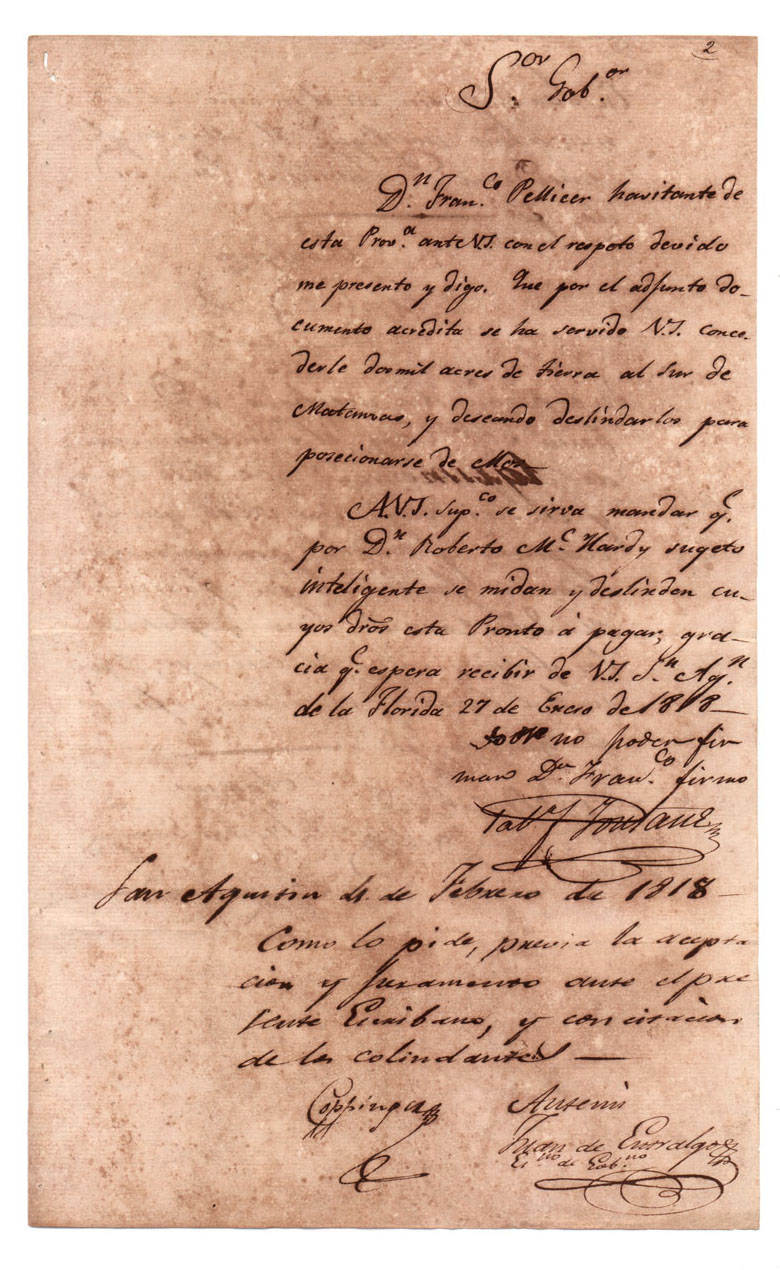 2
S.or Gob.or
D.n Fran.co Pellicer havitante de
esta Prov.a ante V.S. con el respeto devido
me presento y digo. Que por el adjunto do-
cumento acredita se ha servido V.S. conce-
derle dos mil acres de tierra al Sur de
Matanzas, y deseando deslindarlos para
posecionarse de ellos
A V.S. sup.co se sirva mandar q.e
por D.n Roberto M.c Hardy sugeto
inteligente se midan y deslinden cu-
yos dros esta Pronto á pagar, gra-
cia q.e espera recibir de V.S. S.n Ag.n
de la Florida 27 de Enero de 1818—
no poder fir
mar D.n Fran.co firmo
Fontané
San Agustin 4 de Febrero de 1818—
Como lo pide, previa la acepta
cion y juramento ante el pre
sente Escribano, y con citacion
de los colindantes—
Coppinger
Antemi
Juan de Entralgo
Es.no de Gob.no